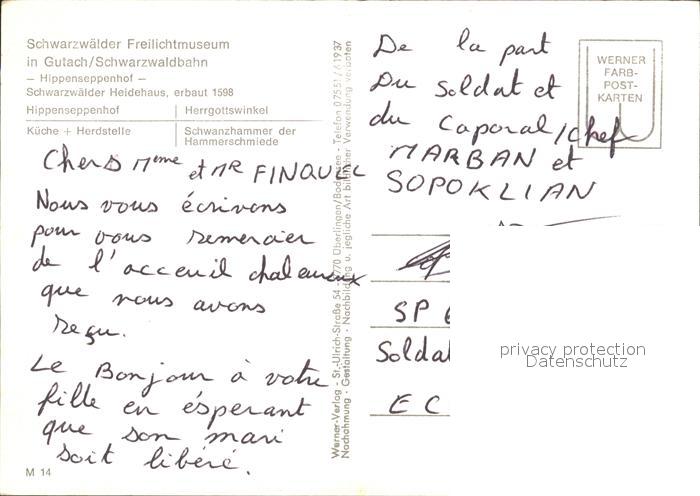 Schwarzwälder Freilichtmuseum
in Gutach/Schwarzwaldbahn
– Hippenseppenhof –
Schwarzwälder Heidehaus, erbaut 1598
Hippenseppenhof
Herrgottswinkel
Küche + Herdstelle
Schwanzhammer der
Hammerschmiede
Chers Mme et MR FINQUEL
Nous vous écrivons
pour vous remercier
de l'acceuil chaleureux
que nous avons
reçu.
Le Bonjour à votre
fille en ésperant
que son mari
soit libéré.
M 14
Werner-Verlag - St.-Ulrich-Straße 54 - 7770 Überlingen/Bodensee - Telefon 07551/61937
Nachahmung - Gestaltung - Nachbildung u. jegliche Art bildlicher Verwendung verboten
De la part
Du Soldat et
du Caporal/Chef
MARBAN et
SOPOKLIAN
WERNER
FARB-
POST-
KARTEN
SP 6
Soldat
EC
privacy protection
Datenschutz